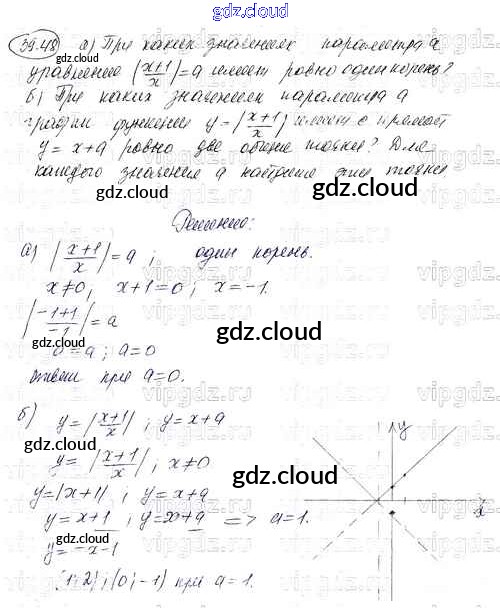 gdz.cloud
39.48 а) При каких значениях параметра a
уравнение |x+1/x| = a имеет ровно один корень?
б) При каких значениях параметра a
график функции y = |x+1/x| имеет с прямой
y = x+a ровно две общие точки? Для
каждого значения a найдите эти точки
gdz.cloud
gdz.cloud
Решение:
а) |x+1/x| = a ; один корень.
x≠0, x+1=0 ; x=-1.
|-1+1/-1| = a
gdz.cloud
0=a ; a=0
Ответ при a=0.
б) y=|x+1/x| ; y=x+a
gdz.cloud
y=|x+1/x| ; x≠0
gdz.cloud
y=|x+1| ; y=x+a
y=x+1 ; y=x+a => a=1.
y=-x-1
(1;2) ; (0;-1) при a=1.
y
x
gdz.cloud
gdz.cloud
vipgdz.ru